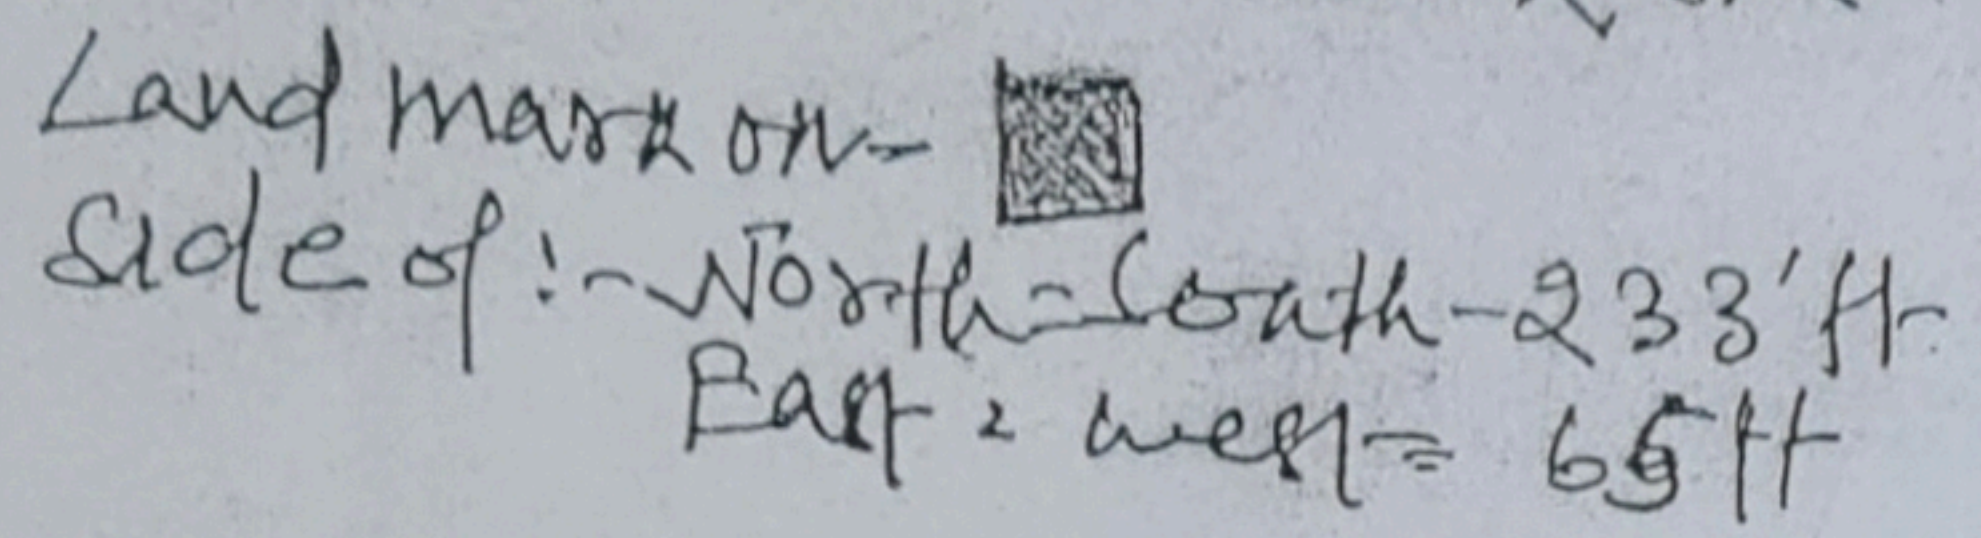 Land mark on-
Side of :- North - South - 233' ft-
East = west = 65 ft